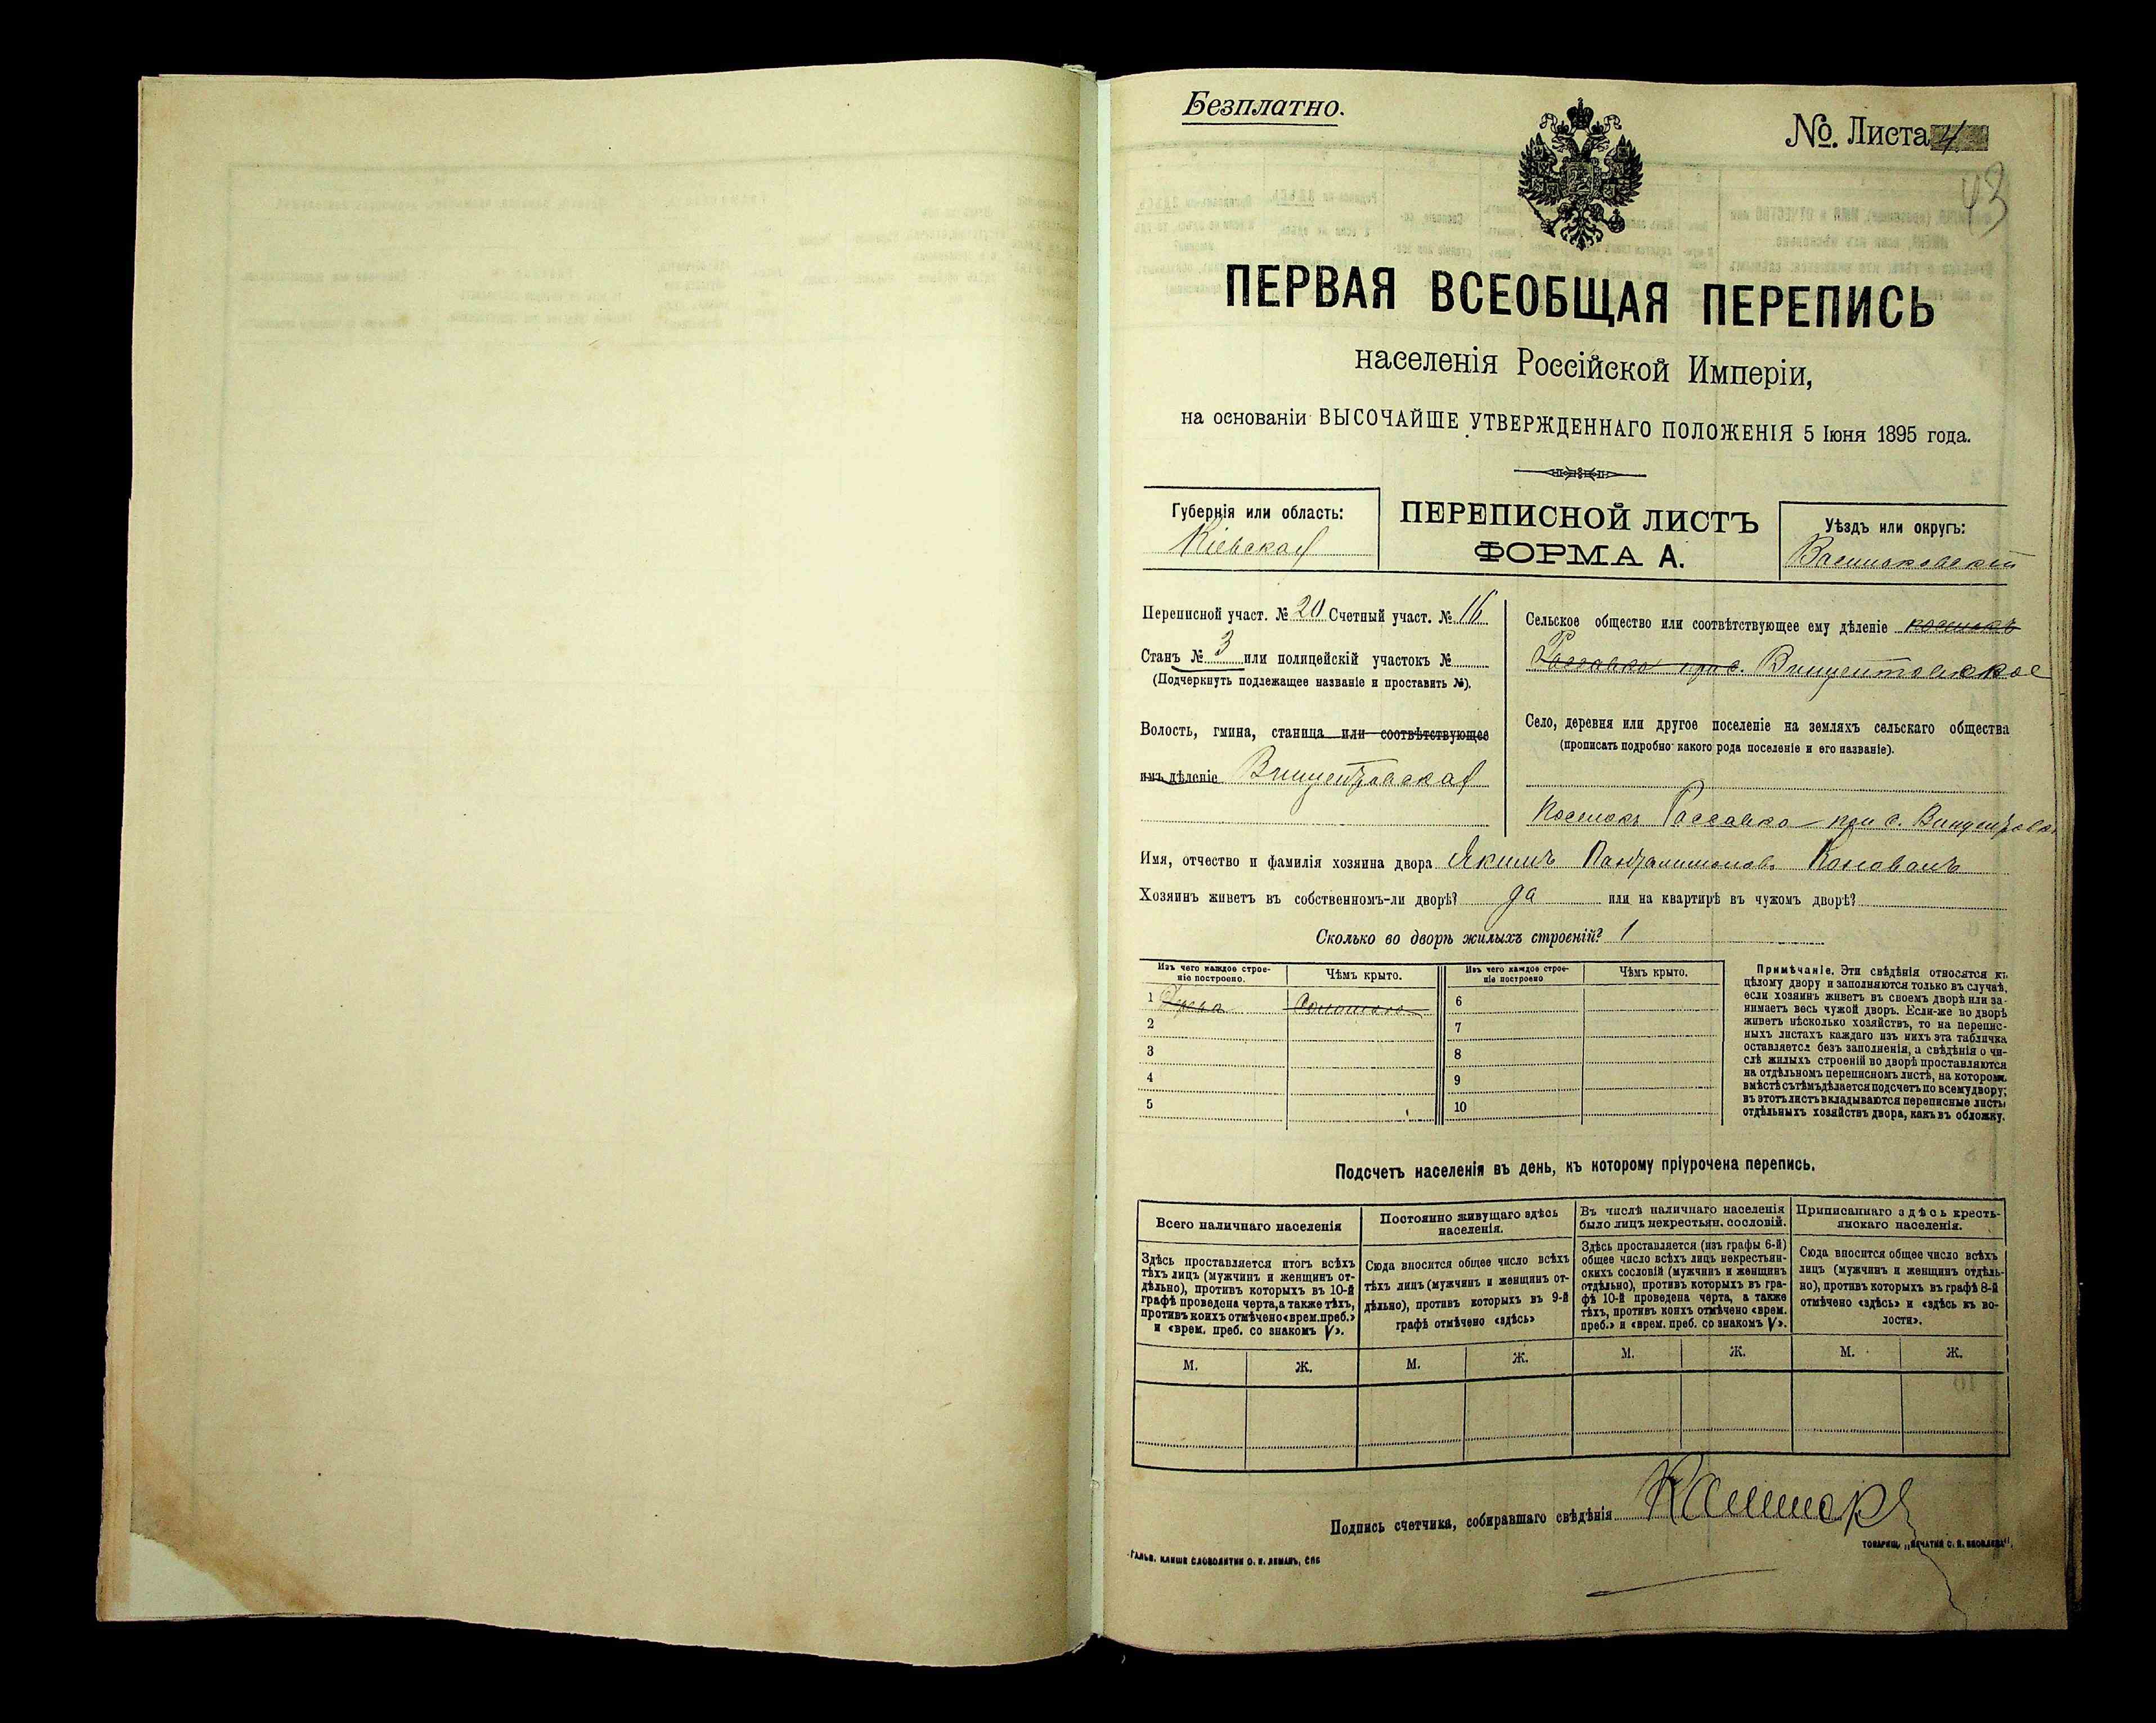 Безплатно.
№. Листа 4
43
ПЕРВАЯ ВСЕОБЩАЯ ПЕРЕПИСЬ
населенія Россійской Имперіи,
на основаніи ВЫСОЧАЙШЕ УТВЕРЖДЕННАГО ПОЛОЖЕНІЯ 5 Іюня 1895 года.
Губернія или область:
Кіевская
ПЕРЕПИСНОЙ ЛИСТЪ
ФОРМА А.
Уѣздъ или округъ:
Васильковскій
Переписной участ. № 20 Счетный участ. № 16
Станъ № 3 или полицейскій участокъ №
(Подчеркнуть подлежащее названіе и проставить №).
Волость, гмина, станица или соотвѣтствующее
имъ дѣленіе Винцентовская
Сельское общество или соотвѣтствующее ему дѣленіе поселокъ
Россавка при с. Винцентовское
Село, деревня или другое поселеніе на земляхъ сельскаго общества
(прописать подробно какого рода поселеніе и его названіе).
Поселокъ Россавка при с. Винцентовкѣ
Имя, отчество и фамилія хозяина двора Якимъ Пантелимоновъ Коновалъ
Хозяинъ живетъ въ собственномъ-ли дворѣ? да или на квартирѣ въ чужомъ дворѣ?
Сколько во дворѣ жилыхъ строеній? 1
Изъ чего каждое строе-
ніе построено.
Чѣмъ крыто.
Изъ чего каждое строе-
ніе построено
Чѣмъ крыто.
1 Соломою 6
2 7
3 8
4 9
5 10
Примѣчаніе. Эти свѣдѣнія относятся къ
цѣлому двору и заполняются только въ случаѣ,
если хозяинъ живетъ въ своемъ дворѣ или за-
нимаетъ весь чужой дворъ. Если-же во дворѣ
живетъ нѣсколько хозяйствъ, то на перепис-
ныхъ листахъ каждаго изъ нихъ эта табличка
оставляется безъ заполненія, а свѣдѣнія о чи-
слѣ жилыхъ строеній во дворѣ проставляются
на отдѣльномъ переписномъ листѣ, на которомъ
вмѣстѣ съ тѣмъ дѣлается подсчетъ по всему двору;
въ этотъ листъ вкладываются переписные листы
отдѣльныхъ хозяйствъ двора, какъ въ обложку.
Подсчетъ населенія въ день, къ которому пріурочена перепись.
Всего наличнаго населенія
Здѣсь проставляется итогъ всѣхъ
тѣхъ лицъ (мужчинъ и женщинъ от-
дѣльно), противъ которыхъ въ 10-й
графѣ проведена черта, а также тѣхъ,
противъ коихъ отмѣчено «врем. преб.»
и «врем. преб. со знакомъ V».
Постоянно живущаго здѣсь
населенія.
Сюда вносится общее число всѣхъ
тѣхъ лицъ (мужчинъ и женщинъ от-
дѣльно), противъ которыхъ въ 9-й
графѣ отмѣчено «здѣсь»
Въ числѣ наличнаго населенія
было лицъ некрестьян. сословій.
Здѣсь проставляется (изъ графы 6-й)
общее число всѣхъ лицъ некрестьян-
скихъ сословій (мужчинъ и женщинъ
отдѣльно), противъ которыхъ въ гра-
фѣ 10-й проведена черта, а также
тѣхъ, противъ коихъ отмѣчено «врем.
преб.» и «врем. преб. со знакомъ V».
Приписаннаго здѣсь кресть-
янскаго населенія.
Сюда вносится общее число всѣхъ
лицъ (мужчинъ и женщинъ отдѣль-
но), противъ которыхъ въ графѣ 8-й
отмѣчено «здѣсь» и «здѣсь къ во-
лости».
М. Ж. М. Ж. М. Ж. М. Ж.
Подпись счетчика, собиравшаго свѣдѣнія
ГАЛЬВ. КЛИШЕ СЛОВОЛИТНИ О. И. ЛЕМАНЪ, СПБ
ТОВАРИЩ. „ПЕЧАТНЯ С. П. ЯКОВЛЕВА".